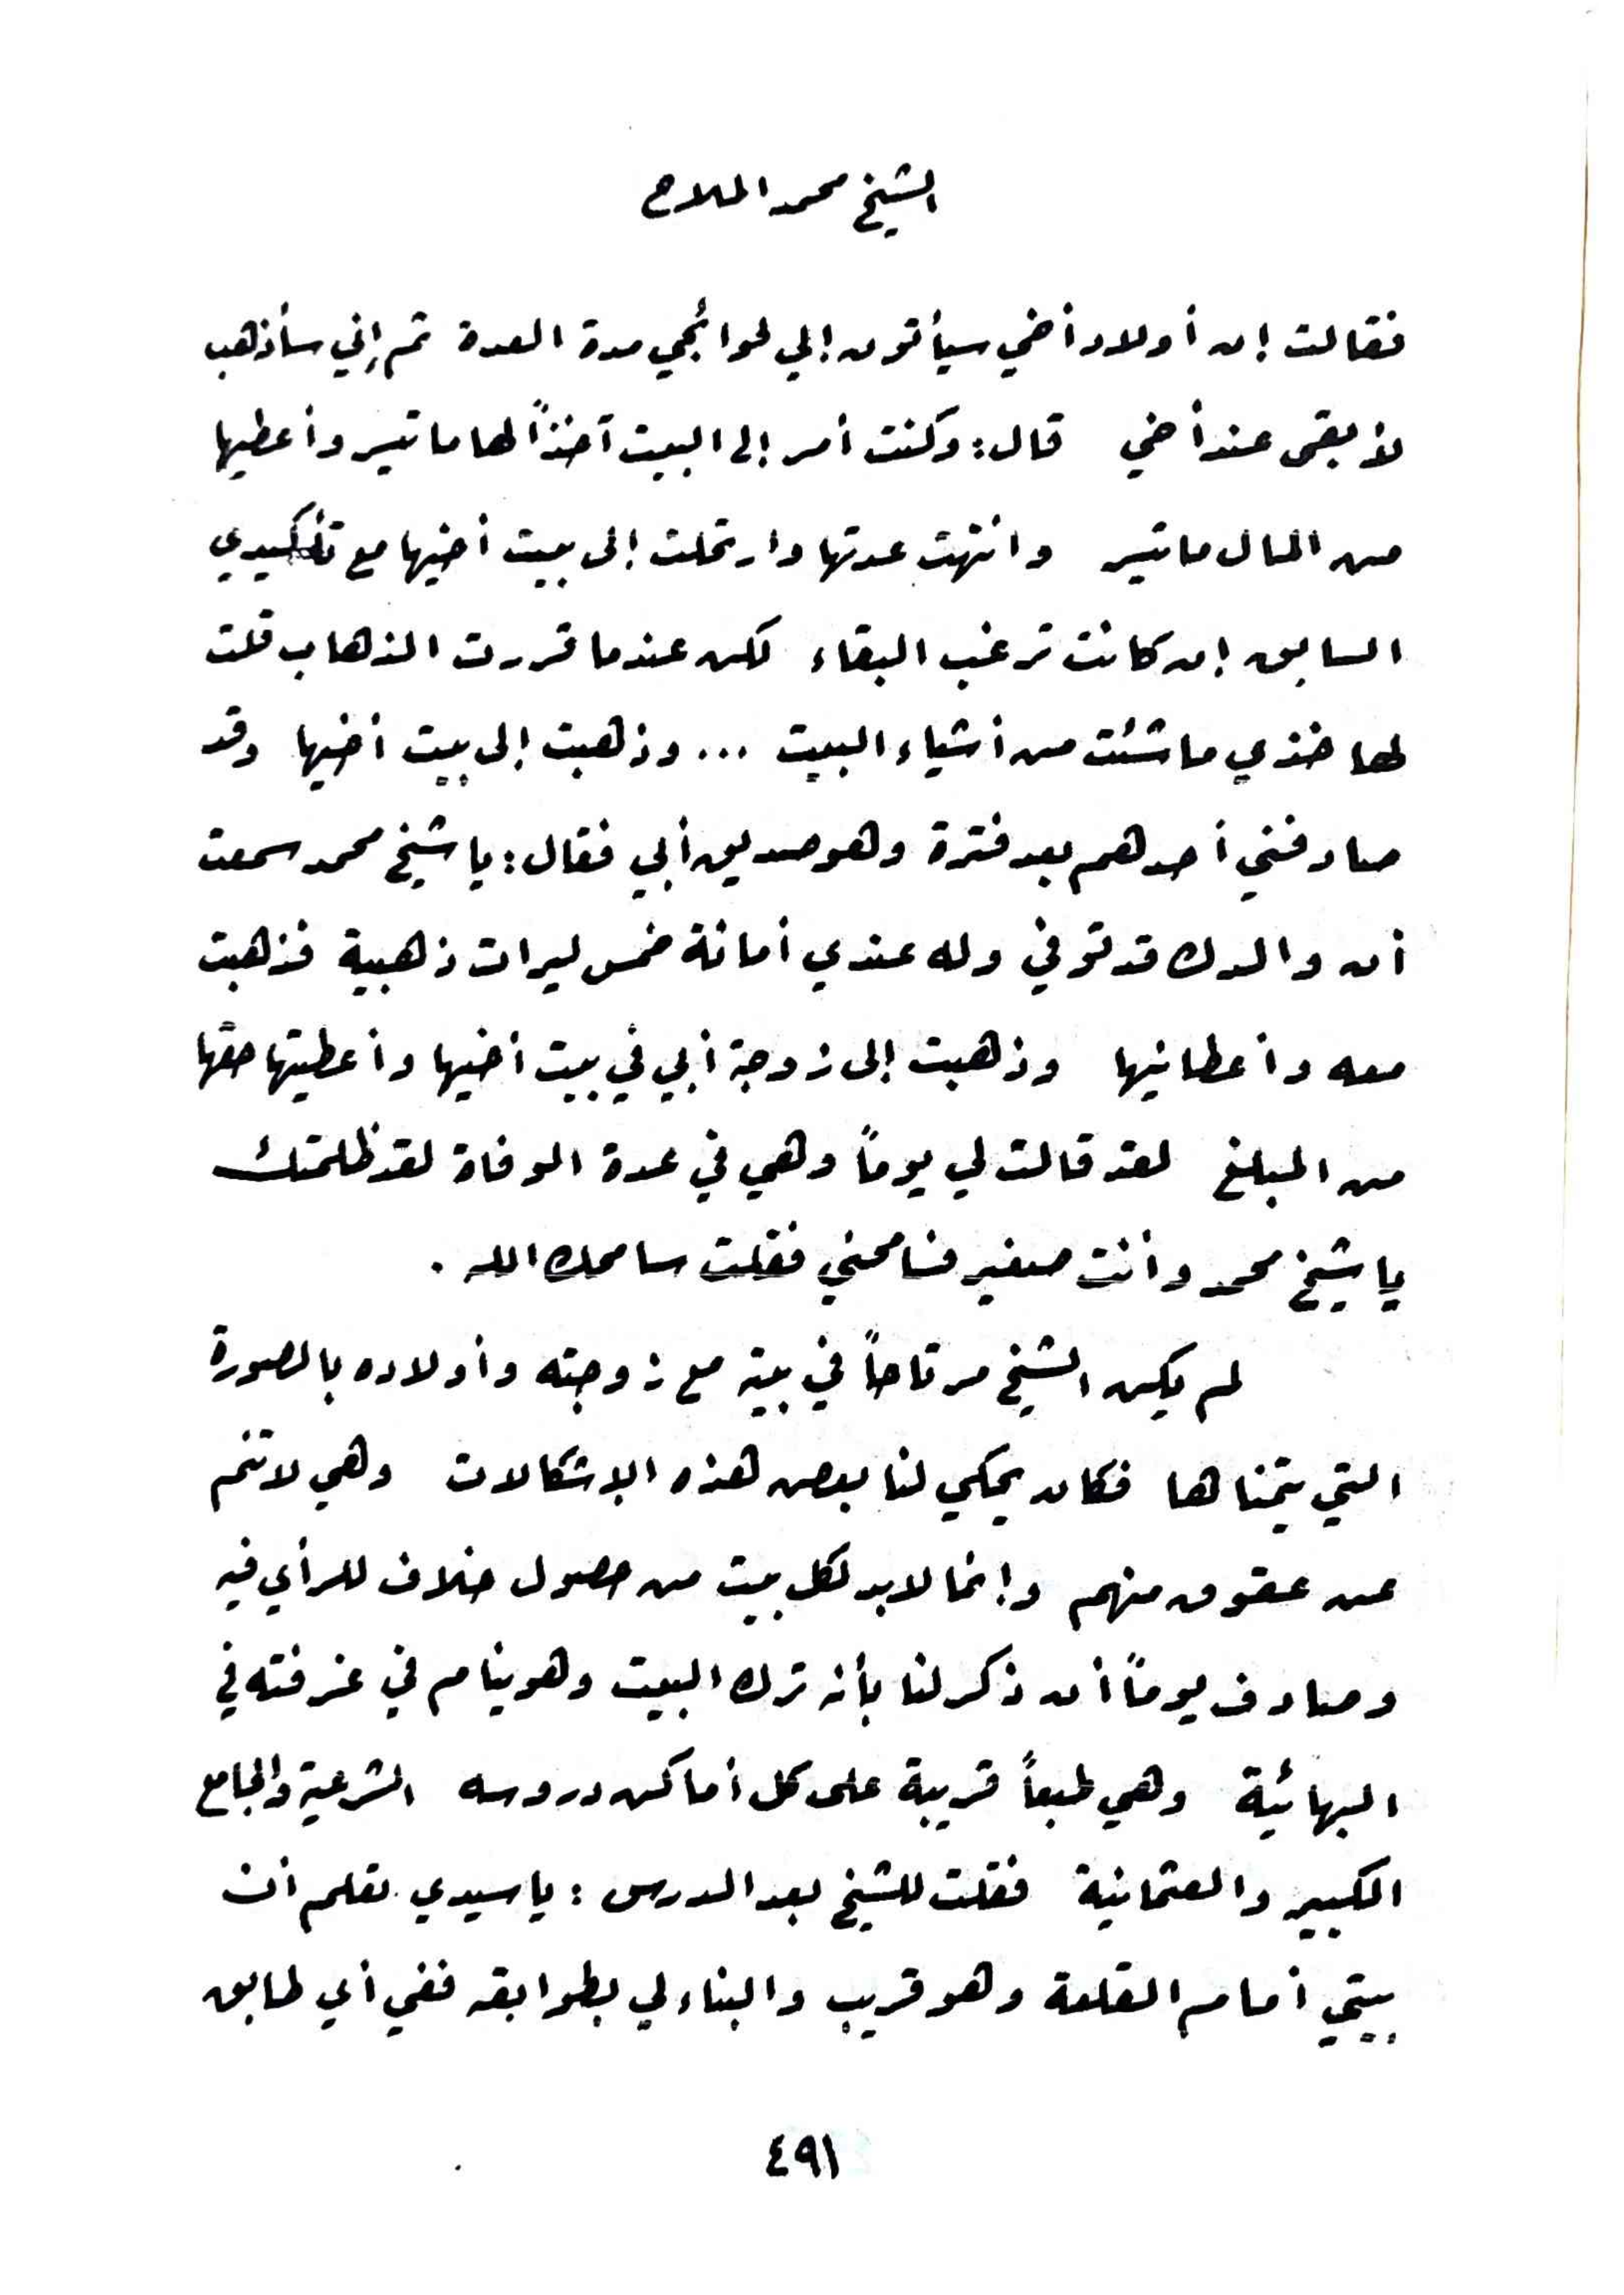 الشيخ محمد الملاح
فقالت إن أولاد أخي سيأتون إلي لحوائجي مدة العدة ثم إني سأذهب
لأبقى عند أخي قال: وكنت أمر إلى البيت آخذاً لها ما تيسر وأعطيها
من المال ما تيسر وانتهت عدتها وارتحلت إلى بيت أخيها مع تأكيدي
السابق إن كانت ترغب البقاء لكن عندما قررت الذهاب قلت
لها خذي ما شئت من أشياء البيت ... وذهبت إلى بيت أخيها وقد
صادفني أحدهم بعد فترة وهو صديق أبي فقال: يا شيخ محمد سمعت
أن والدك قد توفي وله عندي أمانة خمس ليرات ذهبية فذهبت
معه وأعطانيها وذهبت إلى زوجة أبي في بيت أخيها وأعطيتها حقها
من المبلغ لقد قالت لي يوماً وهي في عدة الوفاة لقد ظلمتك
يا شيخ محمد وأنت صغير فسامحني فقلت سامحك الله .
لم يكن الشيخ مرتاحاً في بيته مع زوجته وأولاده بالصورة
التي يتمناها فكان يحكي لنا بعض هذه الإشكالات وهي لا تنم
عن عقوق منهم وإنما لابد لكل بيت من حصول خلاف للرأي فيه
وصادف يوماً أن ذكر لنا بأنه ترك البيت وهو ينام في غرفته في
البهائية وهي طبعاً قريبة على كل أماكن دروسه الشرعية والجامع
الكبير والعثمانية فقلت للشيخ بعد الدرس : يا سيدي تعلم أن
بيتي أمام القلعة وهو قريب والبناء لي بطوابقه ففي أي طابق
٤٩١